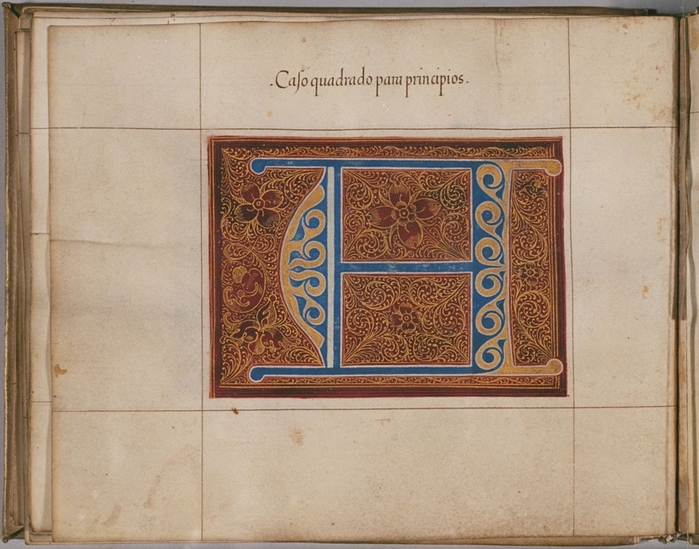 .Caſo quadrado para principios.
H